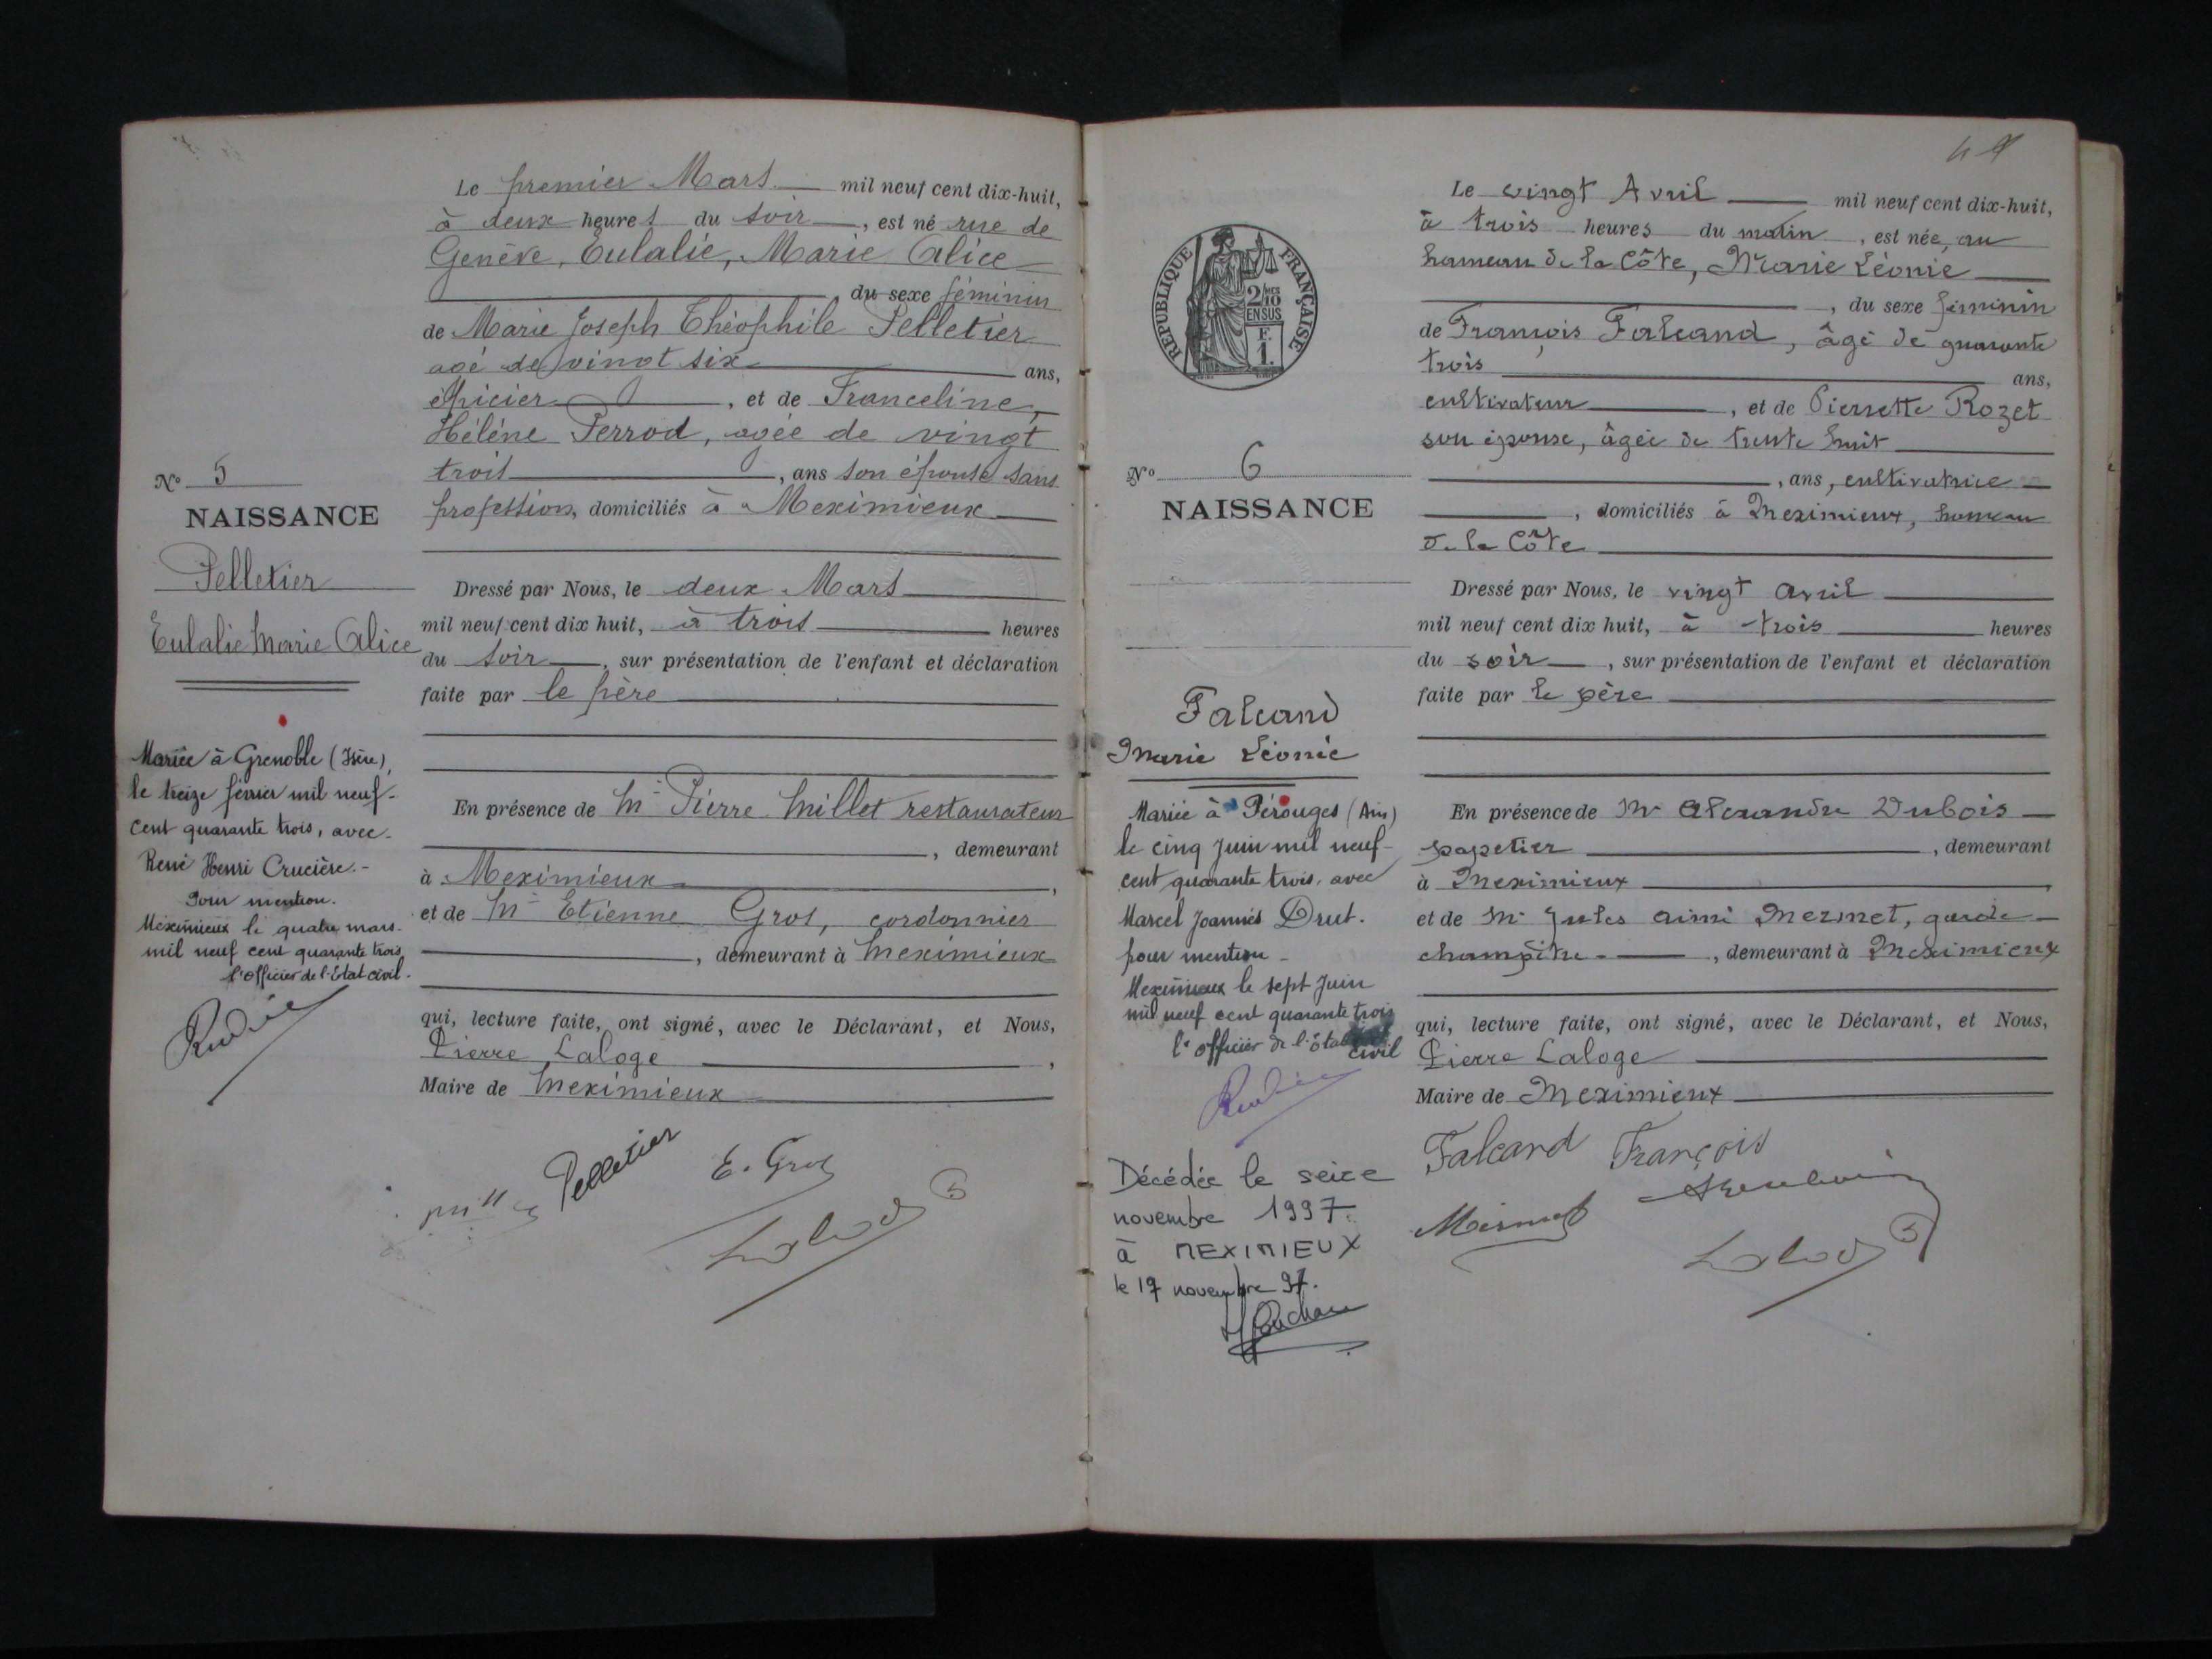 Le premier Mars mil neuf cent dix-huit,
à deux heures du soir, est né rue de
Genève, Eulalie, Marie Alice
du sexe féminin
de Marie Joseph Théophile Pelletier
agé de vingt six ans,
épicier, et de Franceline,
Hélène Perrod, agée de vingt
trois, ans son épouse sans
profession, domiciliés à Meximieux
Nº 5
NAISSANCE
Pelletier
Eulalie Marie Alice
Dressé par Nous, le deux Mars
mil neuf cent dix huit, à trois heures
du soir, sur présentation de l'enfant et déclaration
faite par le père
Mariée à Grenoble (Isère),
le treize février mil neuf-
cent quarante trois, avec-
René Henri Crucière.-
Pour mention.
Meximieux le quatre mars-
mil neuf cent quarante trois
l'Officier de l'Etat civil.
En présence de Mr Pierre Millet restaurateur
, demeurant
à Meximieux,
et de Mr Etienne Gros, cordonnier
, demeurant à Meximieux
qui, lecture faite, ont signé, avec le Déclarant, et Nous,
Pierre Laloge,
Maire de Meximieux
Pelletier
E. Gros
49
Le vingt Avril mil neuf cent dix-huit,
à trois heures du matin, est née, au
hameau de la Côte, Marie Léonie
, du sexe féminin
de François Falcand, âgé de quarante
trois ans,
cultivateur, et de Pierrette Rozet
son épouse, âgée de trente huit
, ans, cultivatrice
, domiciliés à Meximieux, hameau
de la Côte
RÉPUBLIQUE FRANÇAISE
2/10
EN SUS
F.
1.
Nº 6
NAISSANCE
Falcand
Marie Léonie
Dressé par Nous, le vingt avril
mil neuf cent dix huit, à trois heures
du soir, sur présentation de l'enfant et déclaration
faite par le père
Mariée à Pérouges (Ain)
le cinq juin mil neuf-
cent quarante trois, avec
Marcel Joannès Drut.
pour mention-
Meximieux le sept Juin
mil neuf cent quarante trois
l'officier de l'état
civil
Décédée le seize
novembre 1997
à MEXIMIEUX
le 17 novembre 97.
En présence de Mr Alexandre Dubois
papetier, demeurant
à Meximieux,
et de Mr Jules Aimé Mermet, garde-
champêtre, demeurant à Meximieux
qui, lecture faite, ont signé, avec le Déclarant, et Nous,
Pierre Laloge
Maire de Meximieux
Falcand François
Mermet